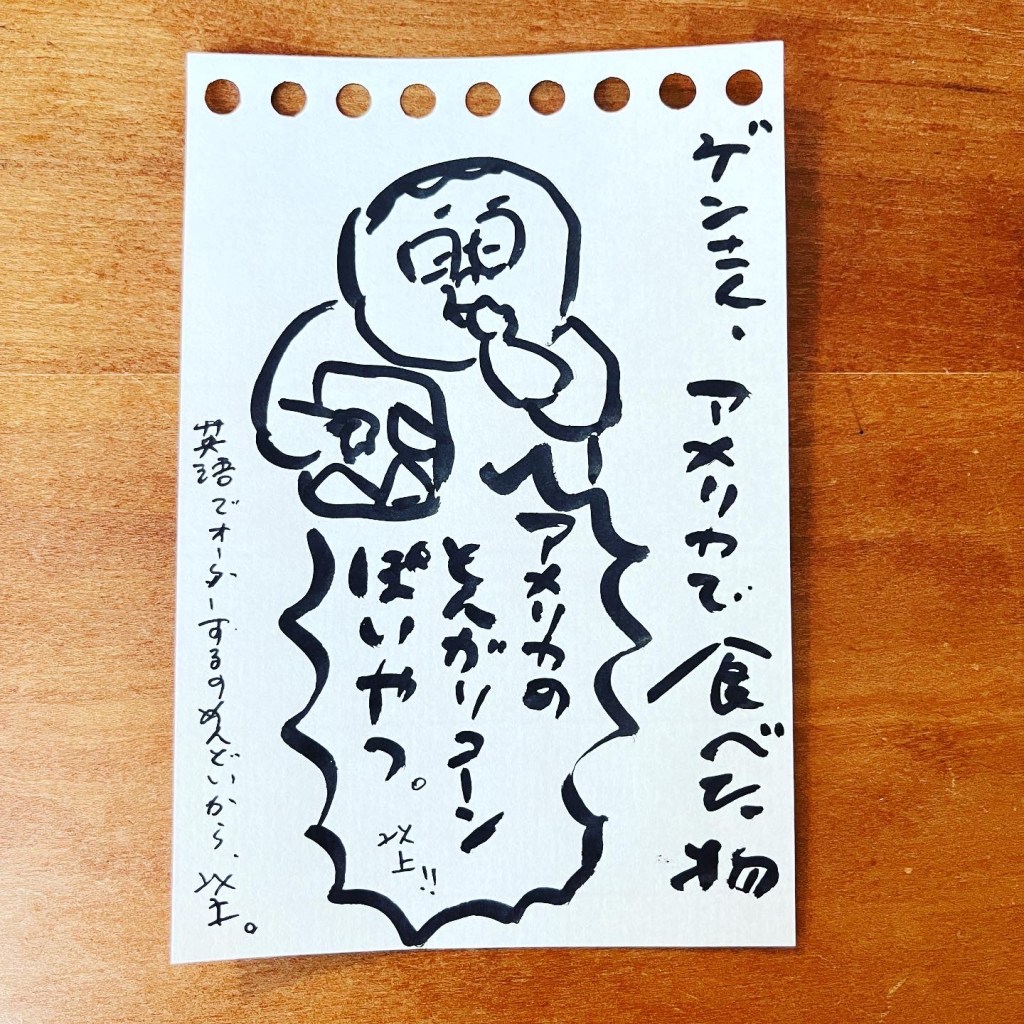 ゲンさん、アメリカで食べた物
アメリカの
とんがりコーン
ぽいやつ。
以上!!
英語でオーダーするのめんどいから、以上。